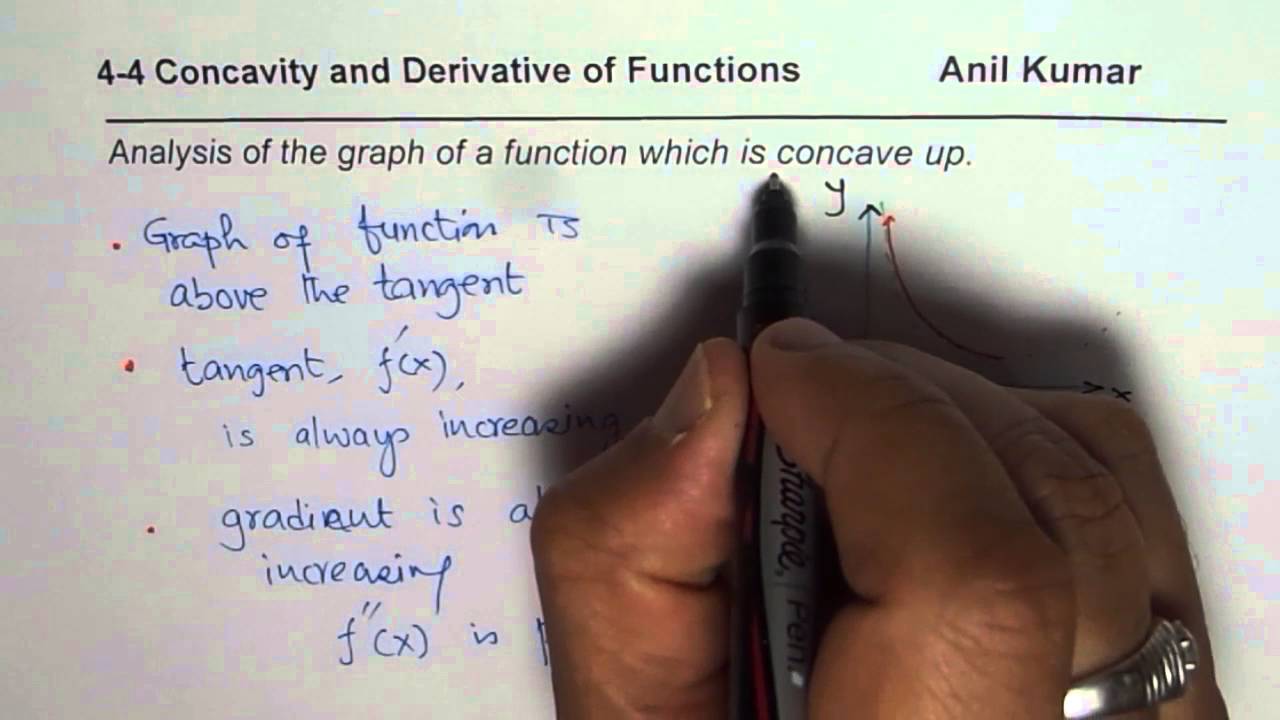 4-4 Concavity and Derivative of Functions Anil Kumar
Analysis of the graph of a function which is concave up.
y
• Graph of function is
above the tangent
• tangent, f'(x),
x
is always increasing
• gradient is
increasing
f''(x) is
Sharpie. Pen.